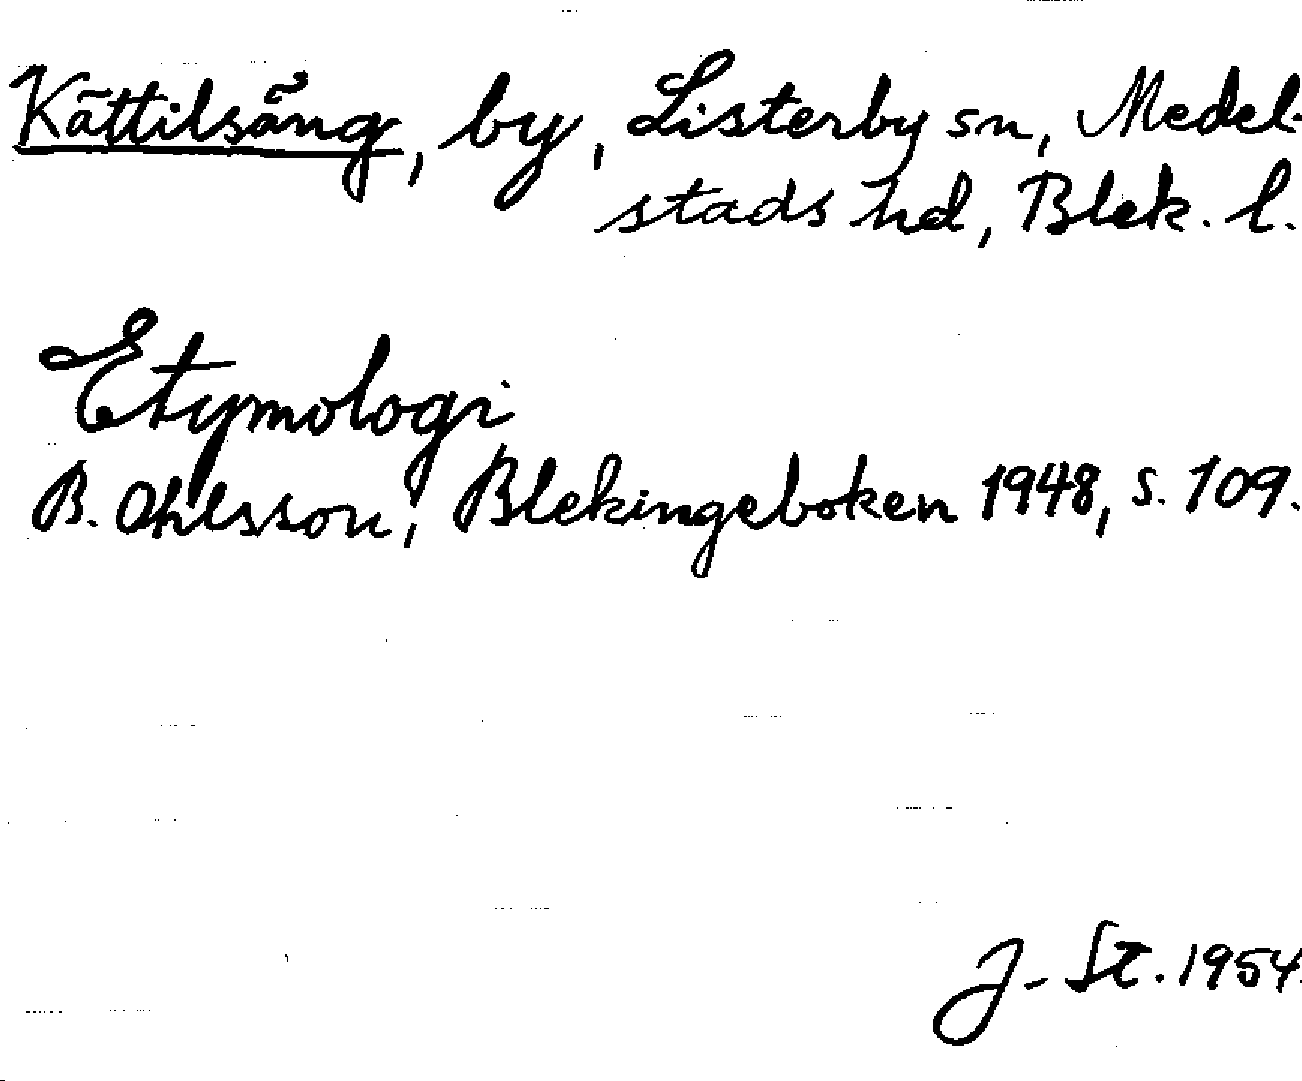 Kättilsång, by, Listerby sn, Medel-
stads hd, Blek. l.
Etymologi
B. Ohlsson, Blekingeboken 1948, s. 109.
J. St. 1954.